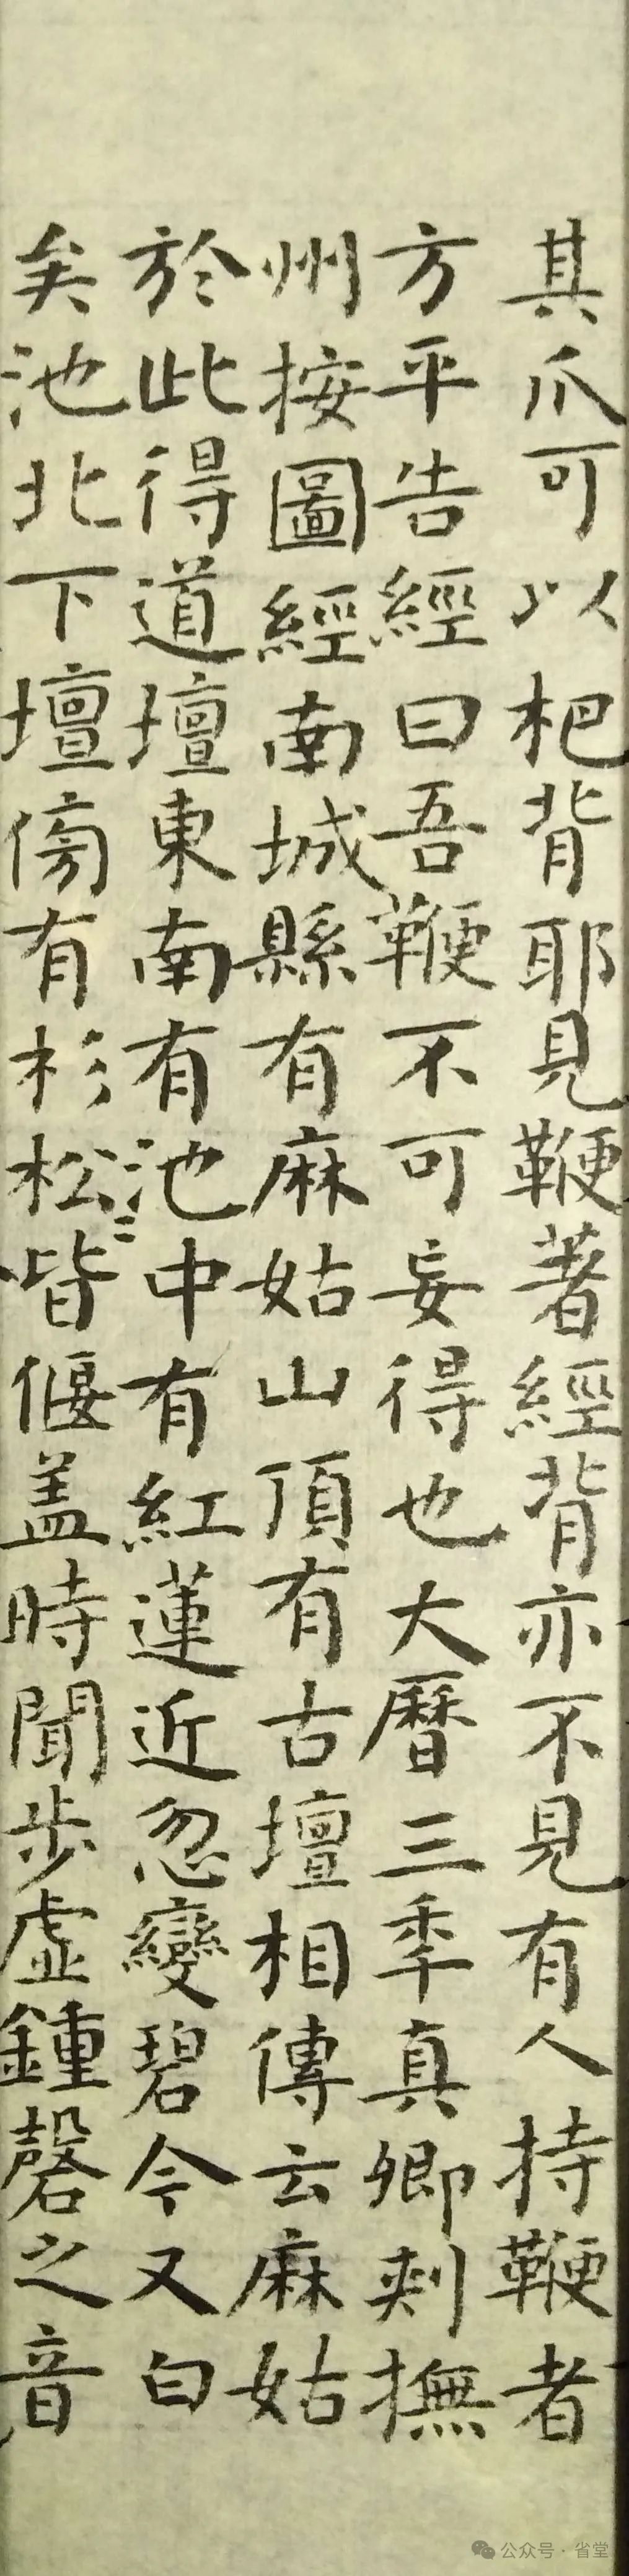 其爪可以杷背耶見鞭著經背亦不見有人持鞭者
方平告經曰吾鞭不可妄得也大曆三秊真卿刾撫
州按圖經南城縣有麻姑山頂有古壇相傳云麻姑
於此得道壇東南有池〻中有紅蓮近忽變碧今又白
矣池北下壇傍有杉松皆偃盖時聞步虛鍾磬之音
公众号·省堂